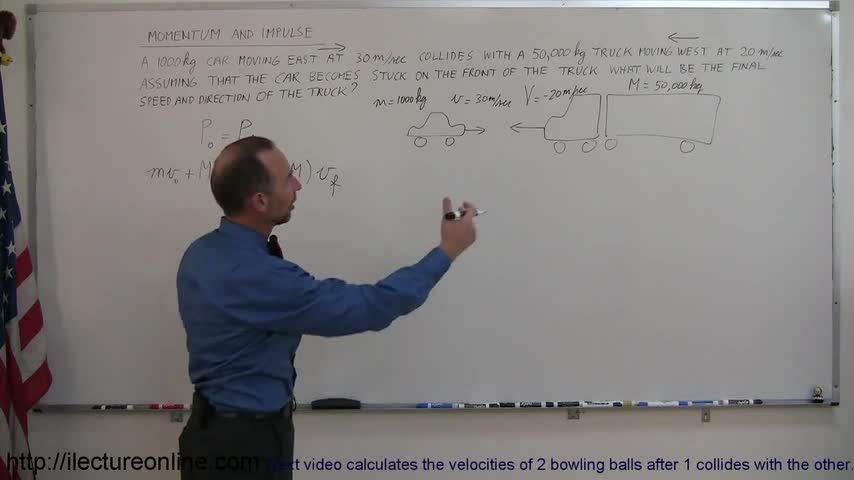 MOMENTUM AND IMPULSE
A 1000kg CAR MOVING EAST AT 30 m/sec COLLIDES WITH A 50,000 kg TRUCK MOVING WEST AT 20 m/sec
ASSUMING THAT THE CAR BECOMES STUCK ON THE FRONT OF THE TRUCK WHAT WILL BE THE FINAL
SPEED AND DIRECTION OF THE TRUCK?
m=1000kg v=30m/sec V=-20m/sec M=50,000 kg
P₀ = P
mv₀ + M M) v_f
http://ilectureonline.com Next video calculates the velocities of 2 bowling balls after 1 collides with the other.